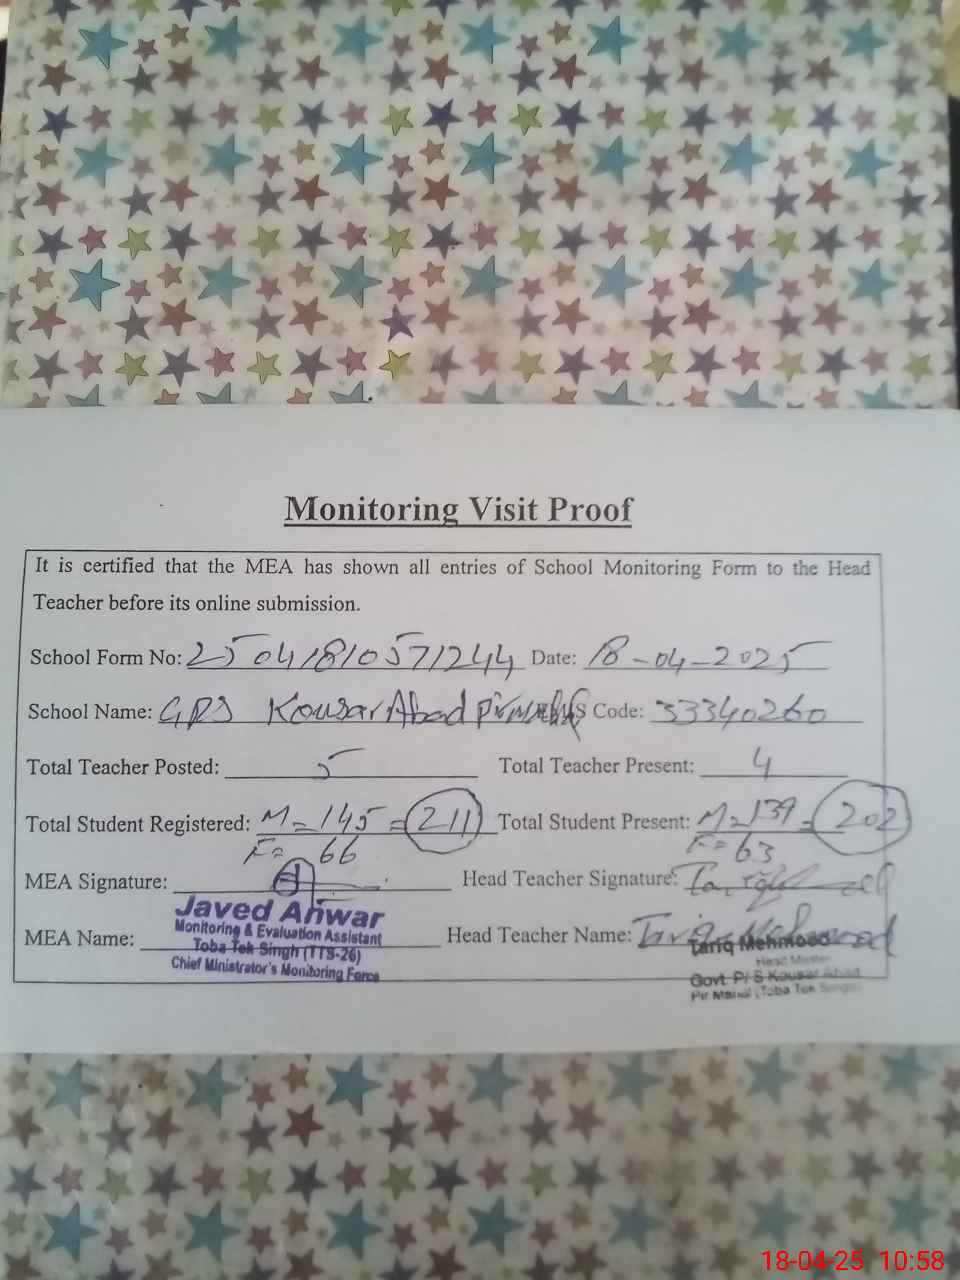 Monitoring Visit Proof
It is certified that the MEA has shown all entries of School Monitoring Form to the Head
Teacher before its online submission.
School Form No: 25041810571244 Date: 18-04-2025
School Name: GPS Kousar Abad Pirmahal S Code: 33340260
Total Teacher Posted: 5 Total Teacher Present: 4
Total Student Registered: M=145 = 211 Total Student Present: M=139 = 202
F= 66 F= 63
MEA Signature: Head Teacher Signature:
Javed Anwar
Monitoring & Evaluation Assistant
MEA Name: Head Teacher Name: Tariq Mehmood
Toba Tek Singh (TTS-26)
Chief Ministrator's Monitoring Force
Tariq Mehmood
Head Master
Govt. P/S Kousar Abad
Pir Mahal (Toba Tek Singh)
18-04-25 10:58